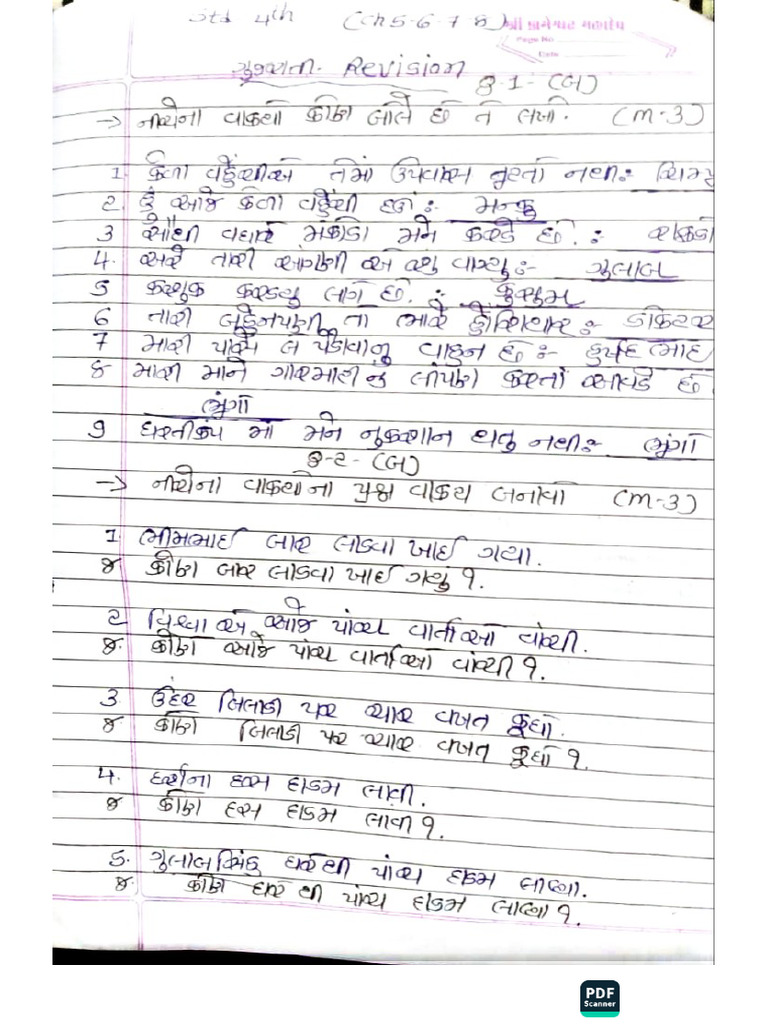 Std 4th (Ch 5-6-7-8) શ્રી જ્ઞાનેશ્વર
Page No.
Date
ગુજરાતી Revision
પ્ર-1-(બ)
→ નીચેના વાક્યો કોણ બોલે છે તે લખો. (M-3)
1. કેળા વહેંચીએ તેમાં ઉપવાસ તૂટતો નથીઃ
2. હું આજે કેળા વહેંચી છતાંઃ મન્કુ
3 સૌથી વધારે મંકોડા મને કરડે છે. :
4. અરે તારી આંગળી એ શુ વાગ્યુઃ- ગુલાબ
5 કશુક કરડ્યુ લાગે છે. : કુસુમ
6 તારી બહેનપણી તો ભારે હોંશિયારઃ ડોક્ટર
7 મારી પાસે બે પૈડાવાનુ વાહન છેઃ-
8 મારી માને ગોરમાટીનું લીંપણ કરતાં આવડે છે
ભુંગા
9 ધરતીકંપ માં મને નુકશાન થતુ નથીઃ ભુંગા
પ્ર-2-(બ)
→ નીચેના વાક્યોના પ્રશ્ન વાક્ય બનાવો (M-3)
1 ભીમભાઈ બાર લાડવા ખાઈ ગયા.
જ કોણ બાર લાડવા ખાઈ ગયું ?.
2 એ આજે પાંચ વાર્તાઓ વાંચી.
જ. કોણે આજે પાંચ વાર્તાઓ વાંચી ?.
3 ઉંદર બિલાડી પર ચાર વખત કૂદ્યો.
જ કોણ બિલાડી પર ચાર વખત કૂદ્યો ?.
4. દર્શના દસ દાડમ લાવી.
જ કોણ દસ દાડમ લાવી ?.
5. ગુલાબસિંહ ઘરેથી પાંચ દાડમ લાવ્યા.
જ. કોણ ઘરે થી પાંચ દાડમ લાવ્યા ?.
PDF
Scanner